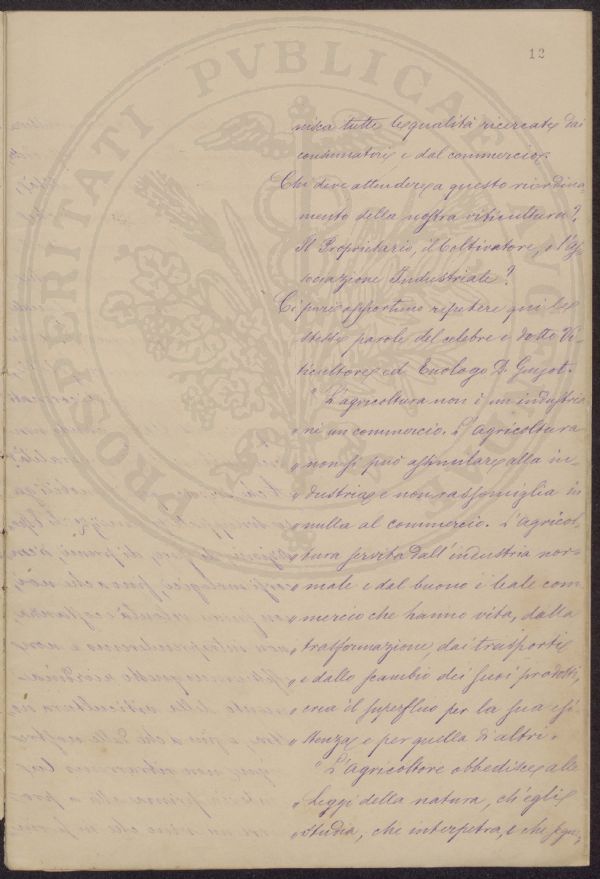 12
PROSPERITATI PVBLICAE AVGENDAE
nisca tutte le qualità ricercate dai
consumatori e dal commercio.
Chi deve attendere a questo riordina
mento della nostra viticultura?
Il Proprietario, il Coltivatore, o l'As
sociazione Industriale?
Ci pare opportuno ripetere qui le
stesse parole del celebre e dotto Vi-
ticultore ed Enologo D. Guyot.
" L'agricoltura non è un industria
" ni un commercio. L'agricoltura
" non si può assimilare alla in-
" dustria e non rassomiglia in
" nulla al commercio. L'agricol-
" tura servita dall'industria nor-
" male e dal buono e leale com
" mercio che hanno vita, dalla
" trasformazione, dai trasporti
" e dallo scambio dei suoi prodotti,
" crea il superfluo per la sua esi
" stenza e per quella di altri.
" L'agricoltore obbedisce alle
" leggi della natura, ch'egli
" studia, che interpetra, e che segue,